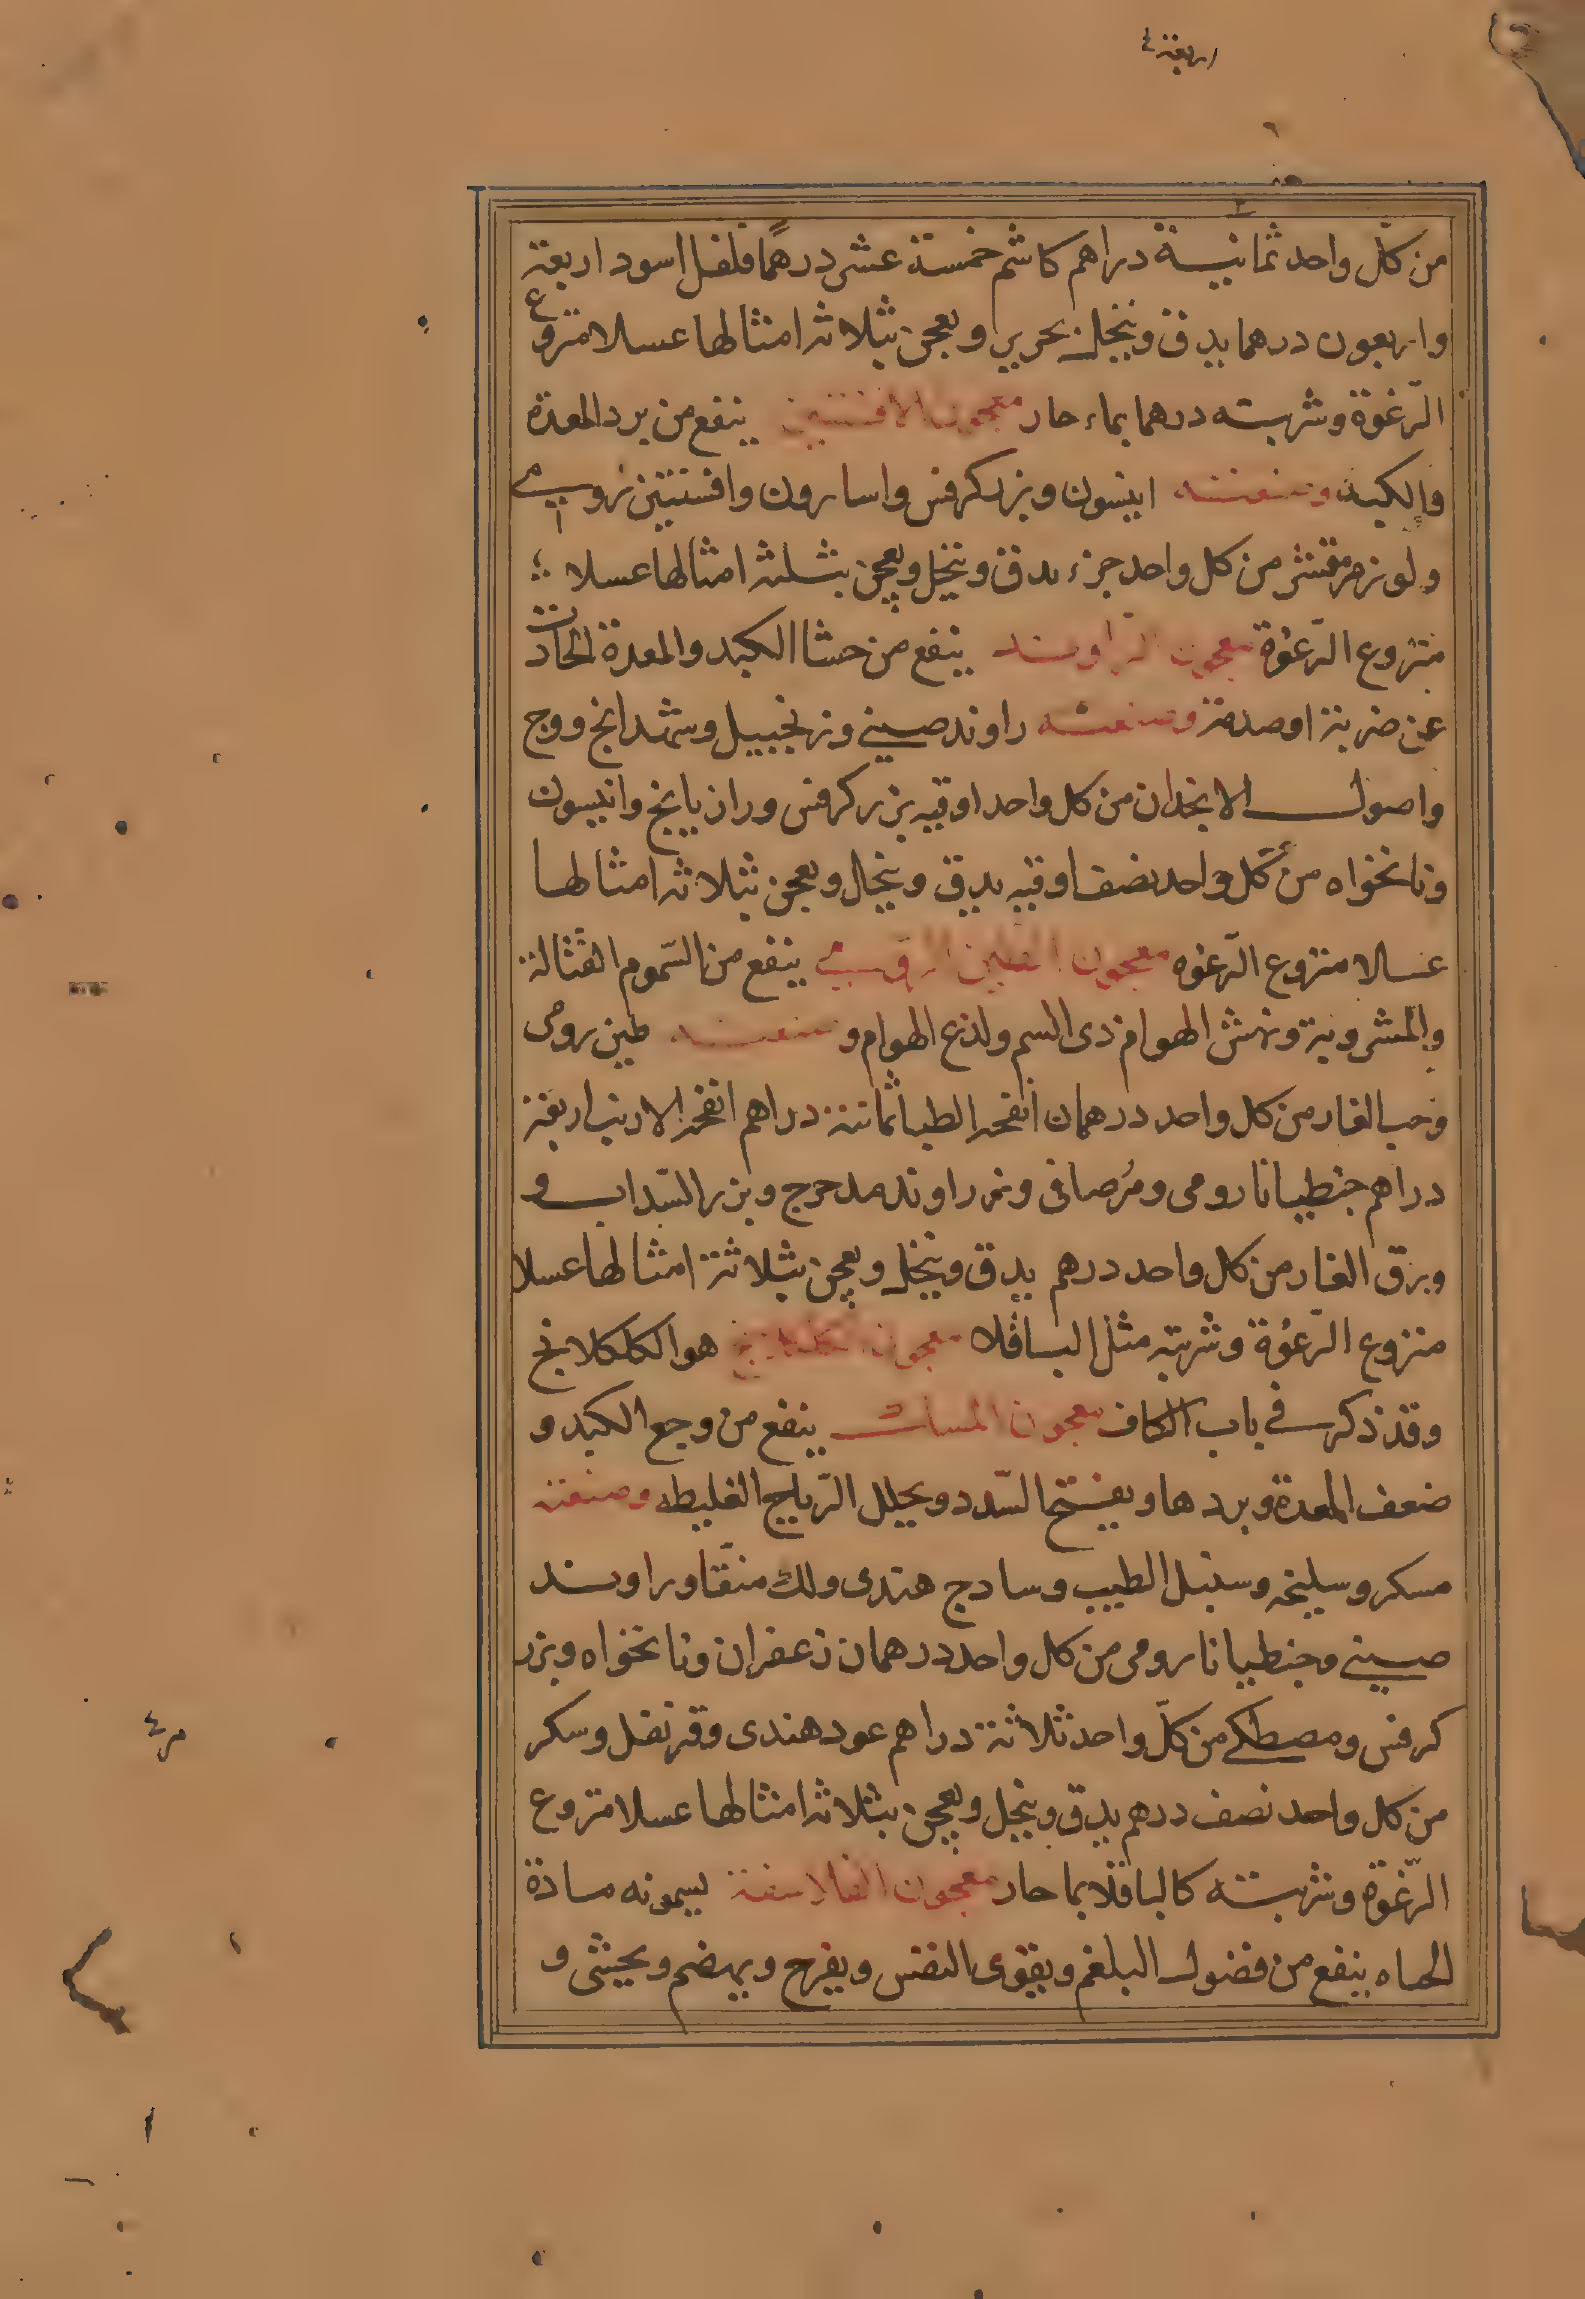 اربعة
من كلّ واحد ثمانية دراهم كاشم خمسة عشر درهمًا فلفل اسود اربعة
واربعون درهما يدق وينخل بحرير ويعجن بثلاثه امثالها عسلا منزوع
الرّغوة وشربته درهما بماء حار معجون الافسنتين ينفع من برد المعدة
والكبد وصنعته انيسون وبزر كرفس واسارون وافسنتين رومي
ولوز مر مقشر من كل واحد جزء يدق وينخل ويعجن بثلثه امثالها عسلا
منزوع الرّغوة معجون الراوند ينفع من حشا الكبد والمعدة الحادث
عن ضربة او صدمة وصنعته راوند صيني وزنجبيل وشهدانج ووج
واصول الانجدان من كل واحد اوقيه بزر كرفس ورازيانج وانيسون
ونانخواه من كل واحد نصف اوقيه يدق وينخل ويعجن بثلاثه امثالها
عسلا منزوع الرّغوه معجون الطين الرومي ينفع من السّموم القتالة
والمشروبة ونهش الهوام ذى السم ولذع الهوام وصنعته طين رومى
وحب الغار من كل واحد درهمان انفحه الظبا ثمانية دراهم انفحه الارنب اربعة
دراهم جنطيانا رومى ومُر صافى وزراوند مدحرج وبزر السّداب و
ورق الغار من كل واحد درهم يدق وينخل ويعجن بثلاثة امثالها عسلا
منزوع الرّغوة وشربته مثل الباقلا معجون هو الكلكلانج
وقد ذكر فى باب الكاف معجون المسك ينفع من وجع الكبد و
ضعف المعدة وبردها ويفتح السّدد ويحلل الرّياح الغليظه وصنعته
مسكر وسليخه وسنبل الطيب وسادج هندى ولك منقّا وراوند
صيني وجنطيانا رومى من كل واحد درهمان زعفران ونانخواه وبزر
كرفس ومصطكى من كلّ واحد ثلاثة دراهم عود هندى وقرنفل وسكر
من كل واحد نصف درهم يدق وينخل ويعجن بثلاثه امثالها عسلا منزوع
الرّغوة وشربته كالباقلا بما حار معجون الفلاسفة يسمونه مادة
الحياه ينفع من فضول البلغم ويقوى النفس ويفرح ويهضم ويحيثى و